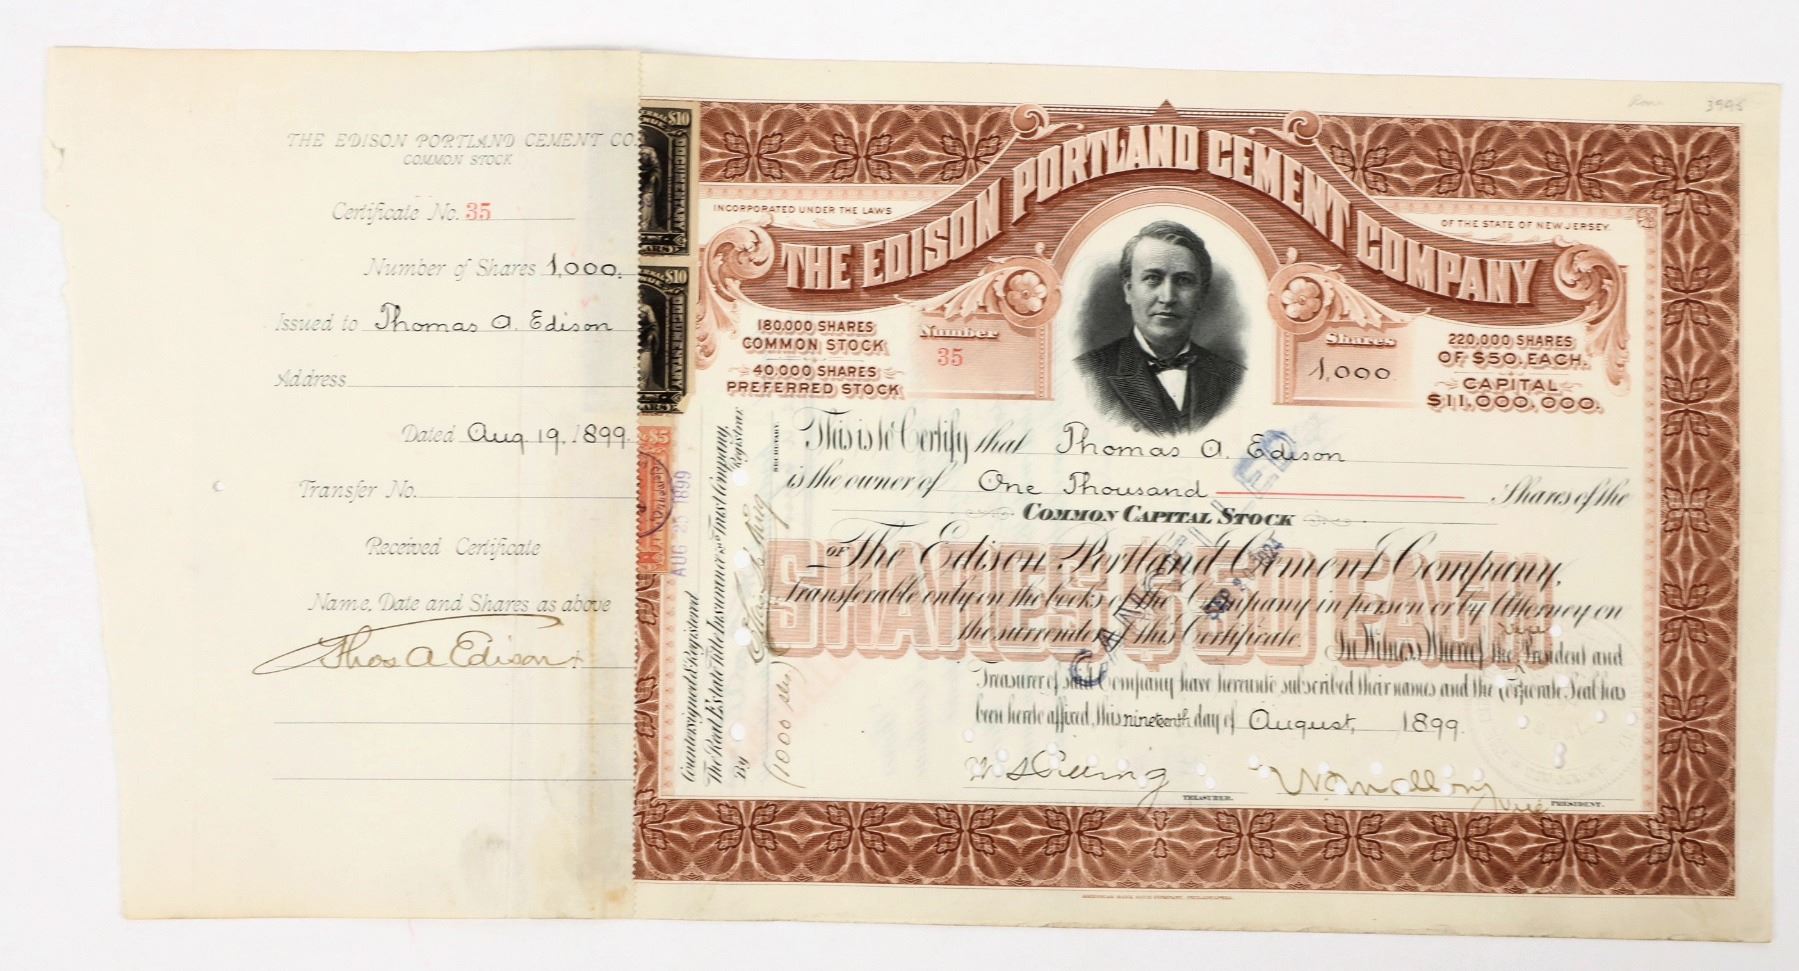 THE EDISON PORTLAND CEMENT CO.
COMMON STOCK
Certificate No. 35
Number of Shares 1,000.
Issued to Thomas A. Edison
Address
Dated Aug 19, 1899.
Transfer No.
Received Certificate
Name, Date and Shares as above
Thos A Edison
$10
DOCUMENTARY
$10
DOCUMENTARY
$5
AUG 25 1899
3995
THE EDISON PORTLAND CEMENT COMPANY
INCORPORATED UNDER THE LAWS
OF THE STATE OF NEW JERSEY.
180,000 SHARES
COMMON STOCK
40,000 SHARES
PREFERRED STOCK
Number
35
Shares
1,000.
220,000 SHARES
OF $50. EACH.
CAPITAL
$11,000,000.
This is to Certify that Thomas A. Edison
is the owner of One Thousand Shares of the
COMMON CAPITAL STOCK
OF The Edison Portland Cement Company,
Transferable only on the books of the Company in person or by Attorney on
the surrender of this Certificate. In Witness Whereof the Vice President and
Treasurer of said Company have hereunto subscribed their names and the Corporate Seal has
been hereto affixed, this nineteenth day of August, 1899.
SHARES $50 EACH
CANCELLED
TREASURER.
W.S. Mallory Vice PRESIDENT.
Countersigned & Registered
The Real Estate Title Insurance & Trust Company,
Registrar
By
SECRETARY.
(1000 shs)
AMERICAN BANK NOTE COMPANY, PHILADELPHIA.